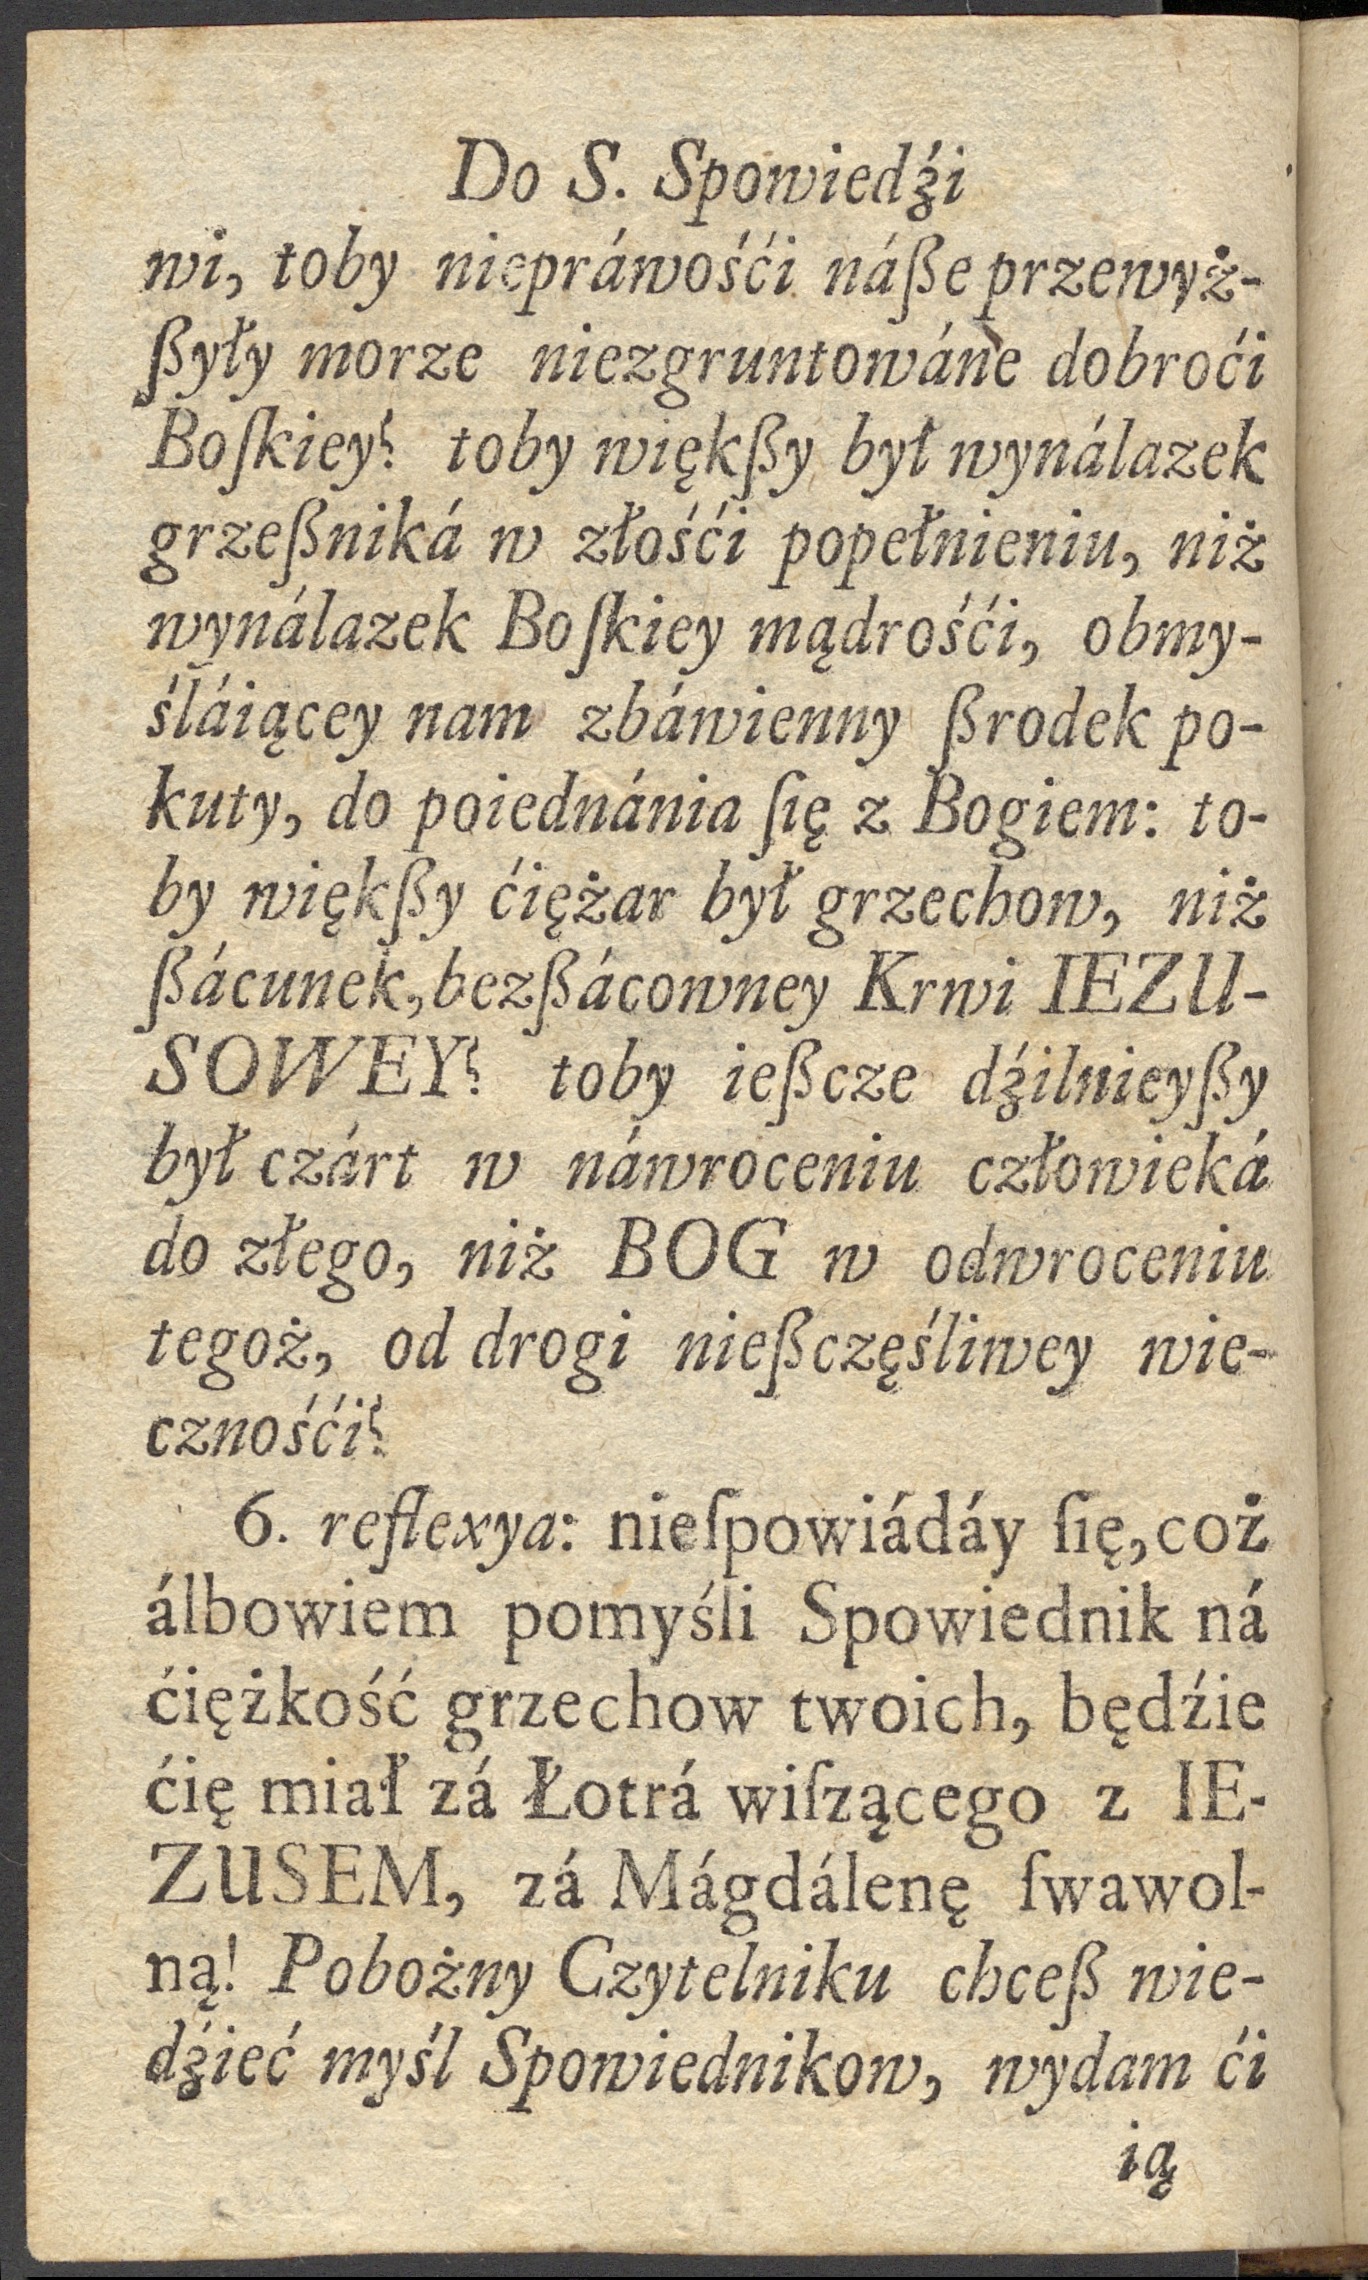 Do S. Spowiedźi
wi, toby niepráwośći náße przewyż-
ßyły morze niezgruntowáne dobroći
Boſkiey? toby więkßy był wynálazek
grzeßniká w złośći popełnieniu, niż
wynálazek Boſkiey mądrośći, obmy-
śláiącey nam zbáwienny ßrodek po-
kuty, do poiednánia ſię z Bogiem: to-
by więkßy ćiężar był grzechow, niż
ßácunek, bezßácowney Krwi IEZU-
SOWEY? toby ießcze dźilnieyßy
był czárt w náwroceniu człowieká
do złego, niż BOG w odwroceniu
tegoż, od drogi nießczęśliwey wie-
cznośći?
6. reflexya: nieſpowiádáy ſię, coż
álbowiem pomyśli Spowiednik ná
ćiężkość grzechow twoich, będźie
ćię miał zá Łotrá wiſzącego z IE-
ZUSEM, zá Mágdálenę ſwawol-
ną! Pobożny Czytelniku chceß wie-
dźieć myśl Spowiednikow, wydam ći
ią